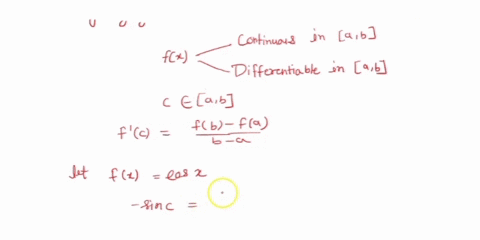 f(x) Continuous in [a,b]
Differentiable in [a,b]
c ∈ [a,b]
f'(c) = f(b) - f(a) / b - a
let f(x) = cos x
-sin c =